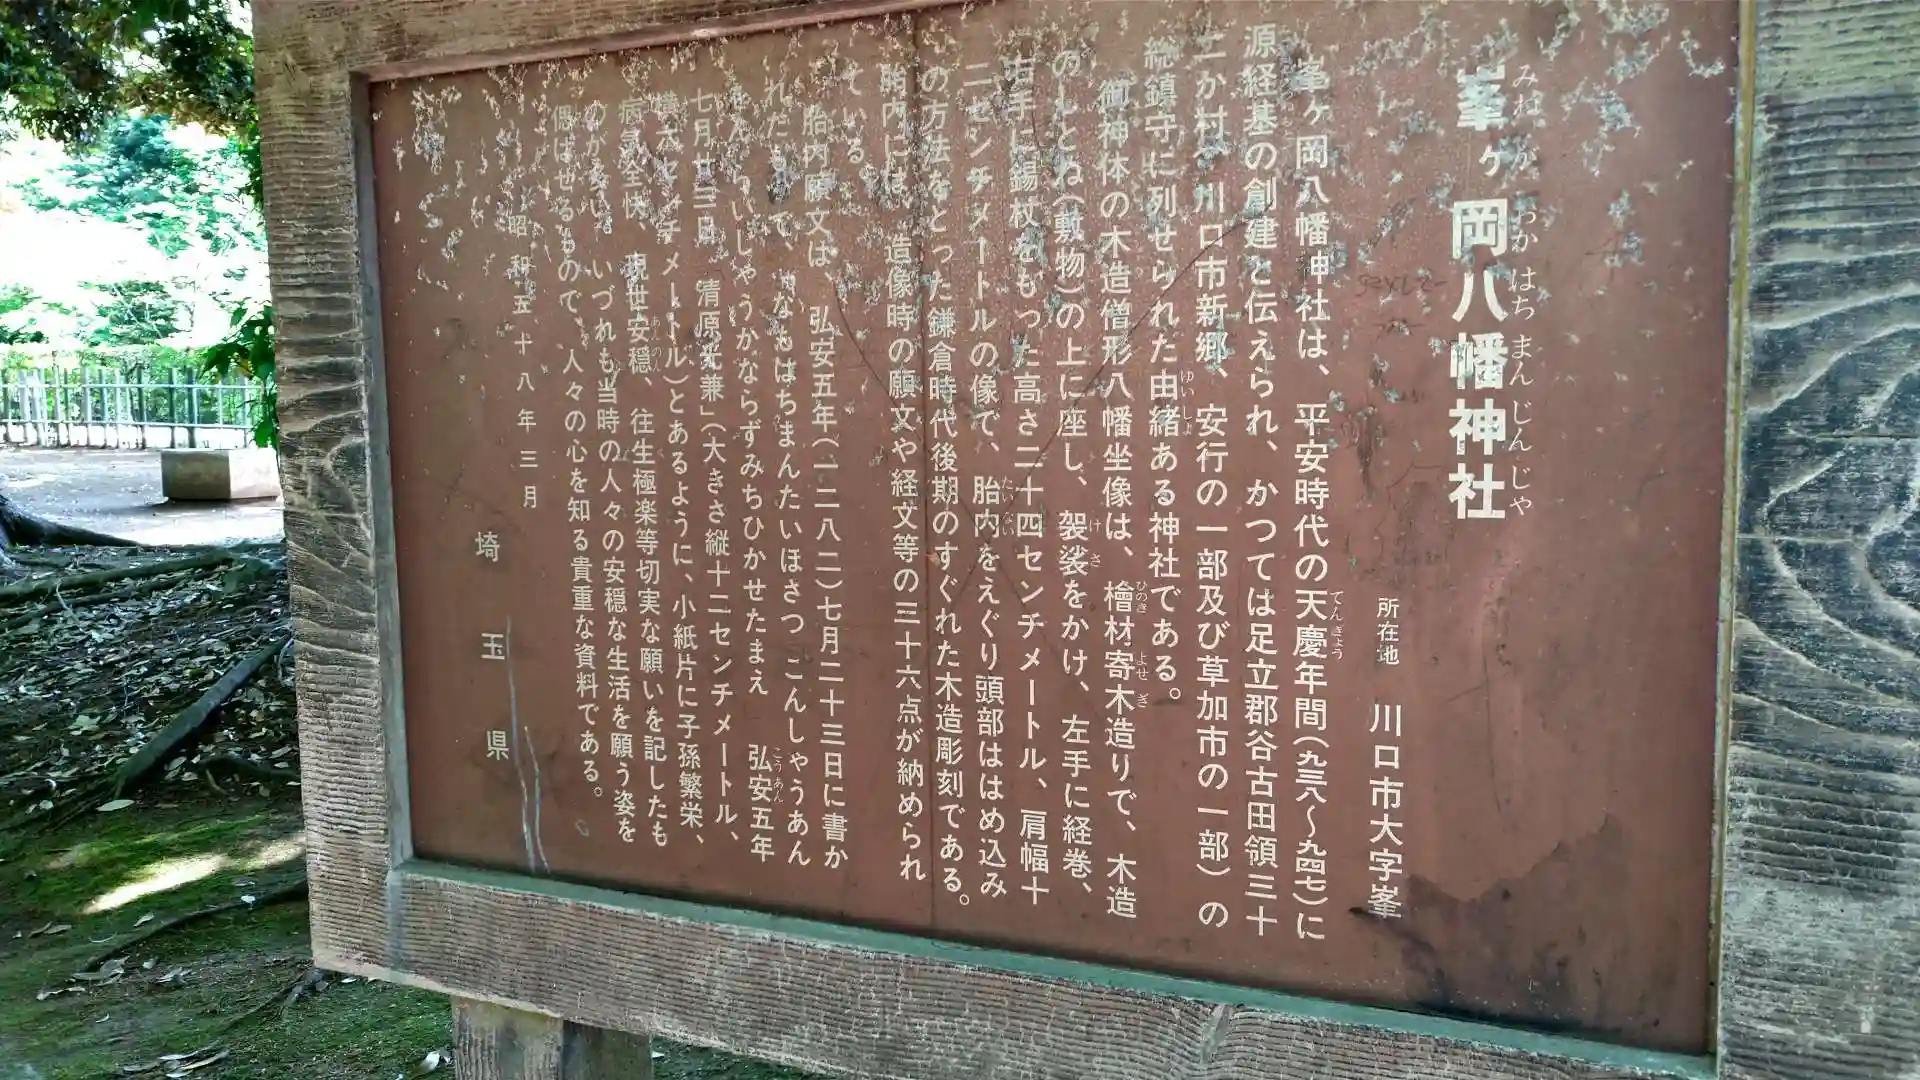 峯ヶ岡八幡神社
みねがおかはちまんじんじゃ
所在地 川口市大字峯
峯ヶ岡八幡神社は、平安時代の天慶年間(九三八〜九四七)に
てんぎょう
源経基の創建と伝えられ、かつては足立郡谷古田領三十
二か村(川口市新郷、安行の一部及び草加市の一部)の
総鎮守に列せられた由緒ある神社である。
ゆいしょ
御神体の木造僧形八幡坐像は、檜材寄木造りで、木造
ひのき よせぎ
のしとね(敷物)の上に座し、袈裟をかけ、左手に経巻、
けさ
右手に錫杖をもった高さ二十四センチメートル、肩幅十
二センチメートルの像で、胎内をえぐり頭部ははめ込み
たいない
の方法をとった鎌倉時代後期のすぐれた木造彫刻である。
胎内には、造像時の願文や経文等の三十六点が納められ
ている。
胎内願文は、弘安五年(一二八二)七月二十三日に書か
れたもので、「なもはちまんたいほさつ こんしゃうあん
をんらいしゃうかならずみちひかせたまえ 弘安五年
こうあん
七月廿三日 清原光兼」(大きさ縦十二センチメートル、
横六センチメートル)とあるように、小紙片に子孫繁栄、
病気全快、現世安穏、往生極楽等切実な願いを記したも
あんのん
のが多い。いづれも当時の人々の安穏な生活を願う姿を
偲ばせるもので、人々の心を知る貴重な資料である。
昭和五十八年三月
埼玉県